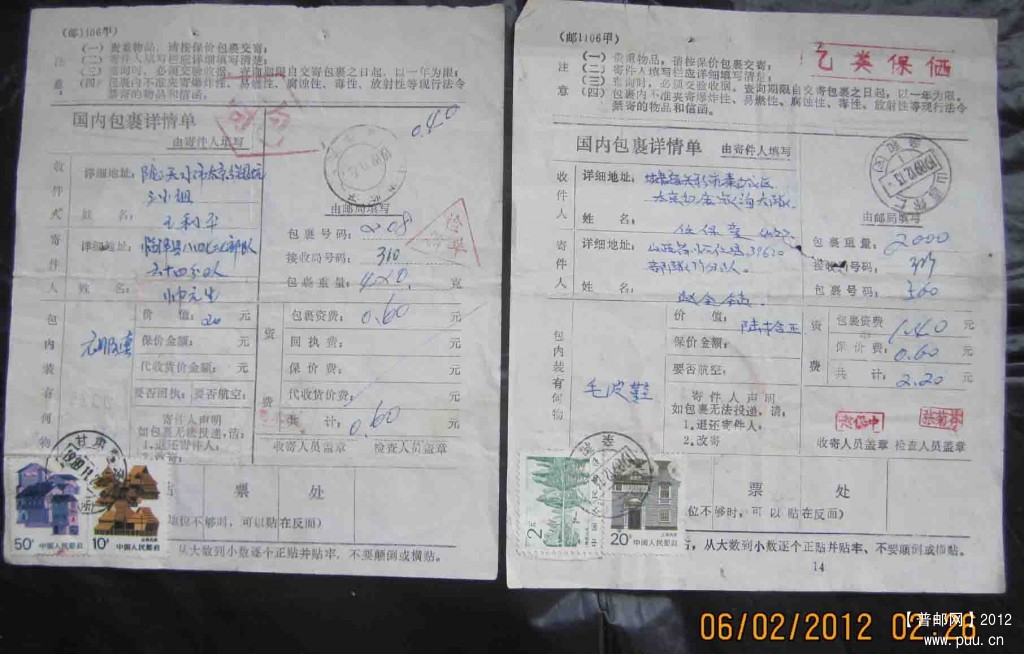 (邮1106甲)
注意:
(一) 贵重物品,请按保价包裹交寄;
(二) 寄件人填写栏应详细填写清楚;
(三) 查询时,必须交验收据。查询期限自交寄包裹之日起,以一年为限;
(四) 包裹内不准夹寄爆炸性、易燃性、腐蚀性、毒性、放射性等现行法令
禁寄的物品和信函。
0.40
国内包裹详情单
由寄件人填写
收件人
详细地址:
姓 名: 王利平
寄件人
详细地址: 临泽县
姓 名: 帅元生
由邮局填写
包裹号码: 208
接收局号码: 310
包裹重量: 420. 克
包内装有何物
衣服壹
价 值: 20 元
保价金额: 元
代收货价金额: 元
要否回执: 要否航空:
寄件人声明
如包裹无法投递,请:
1.退还寄件人;
2.改寄:
资费
包裹资费: 0.60 元
回执费: 元
保价费: 元
代收货价费: 元
共 计: 0.60 元
收寄人员盖章 检查人员盖章
甘肃
票 处
地位不够时,可以贴在反面)
50分 中国人民邮政
10分 中国人民邮政
从大数到小数逐个正贴并贴牢,不要颠倒或横贴。
(邮1106甲)
乙类保价
注意
(一) 贵重物品,请按保价包裹交寄;
(二) 寄件人填写栏应详细填写清楚;
(三) 查询时,必须交验收据。查询期限自交寄包裹之日起,以一年为限。
(四) 包裹内不准夹寄爆炸性、易燃性、腐蚀性、毒性、放射性等现行法令
禁寄的物品和信函。
国内包裹详情单
由寄件人填写
山西怀仁
1989.12.13
收件人
详细地址:
姓 名:
寄件人
详细地址: 山西省怀仁县39620
姓 名:
由邮局填写
包裹重量: 2000
接收局号码: 327
包裹号码: 360
包内装有何物
毛皮鞋
价 值: 陆拾元正
保价金额:
要否航空:
寄件人声明
如包裹无法投递,请:
1.退还寄件人;
2.改寄
资费
包裹资费 1.40 元
保价费: 0.60 元
共 计: 2.20 元
收寄人员盖章 检查人员盖章
票 处
位不够时,可以贴在反面)
2元
20分 中国人民邮政
从大数到小数逐个正贴并贴牢、不要颠倒或横贴。
14
06/02/2012 02:26
【普邮网】2012
www.puu.cn